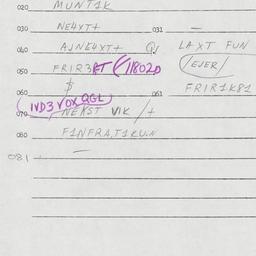 020 MUNT1K
030 NE4XT+ 031 —
040 AJNE4XT+ QJ LAXT FUN
050 FRIR3ET (/1180ZD (EJER/
060 $ 061 FRIR1K81
IVD3VOXQGL)
070 NERST VIK /+
080 F1NFRA,T1RU.N
081 —